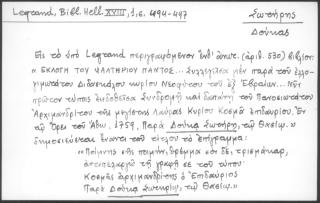 Legrand, Bibl. Hell. XVIII, 1, σ. 494-497
Σωτήρης
Δούκας
Εἰς τὸ ὑπὸ Legrand περιγραφόμενον ὑπ' ἀριθ. (ἀριθ. 530) βιβλίον:
« ΕΚΛΟΓΗ ΤΟΥ ΨΑΛΤΗΡΙΟΥ ΠΑΝΤΟΣ... Συλλεγεῖσα μὲν παρὰ τοῦ ἐλλο-
γιμωτάτου Διδασκάλου κυρίου Νεοφύτου τοῦ ἐξ Ἑβραίων... Νῦν
πρῶτον τύποις ἐκδοθεῖσα Συνδρομῇ καὶ δαπάνῃ τοῦ Πανοσιωτάτου
Ἀρχιμανδρίτου τῆς μεγίστης Λαύρας Κυρίου Κοσμᾶ ἐπιδαυρίου. Ἐν
τῷ Ὄρει τοῦ Ἄθω. 1759. Παρὰ Δούκα Σωτήρη, τῷ Θασίῳ »
δημοσιεύεται ἔναντι τοῦ τίτλου τὸ ἐπίγραμμα:
« Ποίμνης τῆς
τῇ γραφῇ σε τοῦ τύπου
Κοσμᾶς ἀρχιμανδρίτης ὁ Ἐπιδαύριος
Παρὰ Δούκα Σωτηρίῳ, τῷ Θασίῳ »